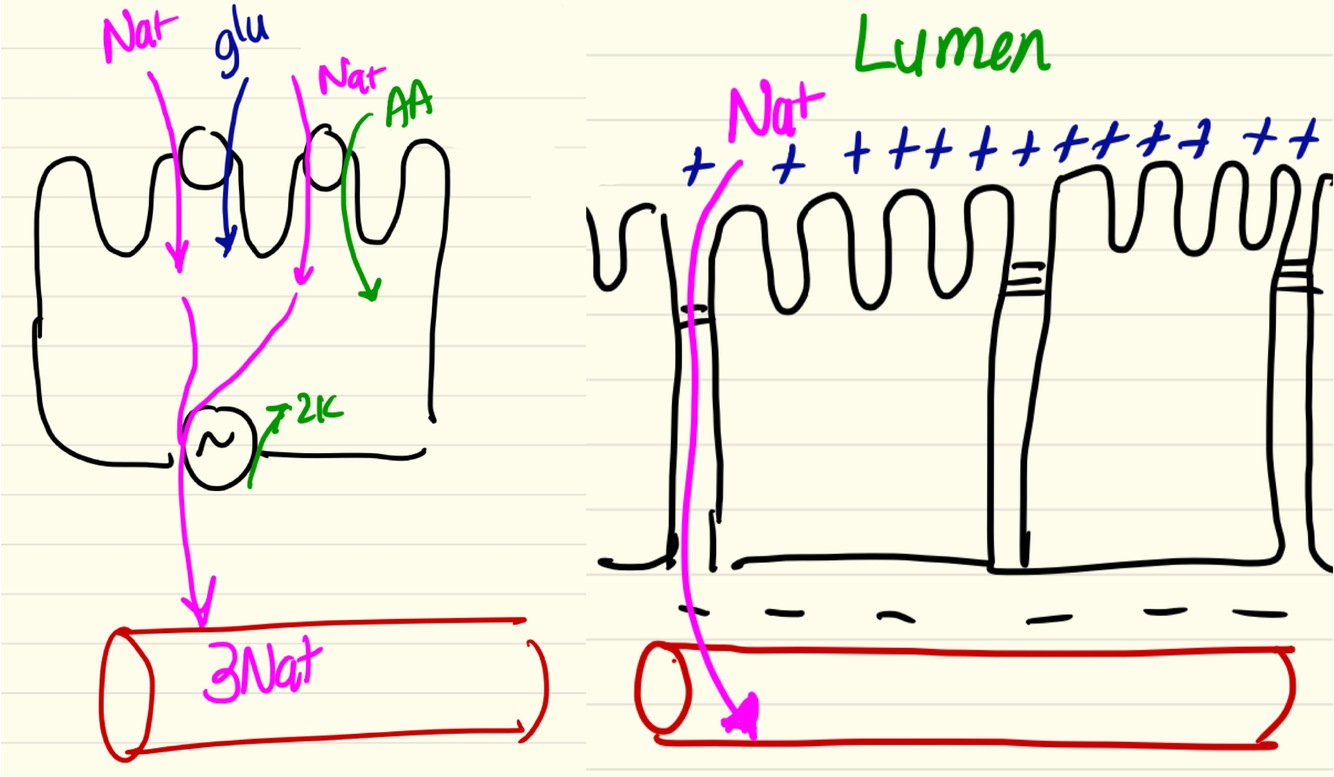 Na+ glu
Na+ AA
~ 2K
3Na+
Lumen
Na+
+ + + + + + + + + + + + +
- - - - - -